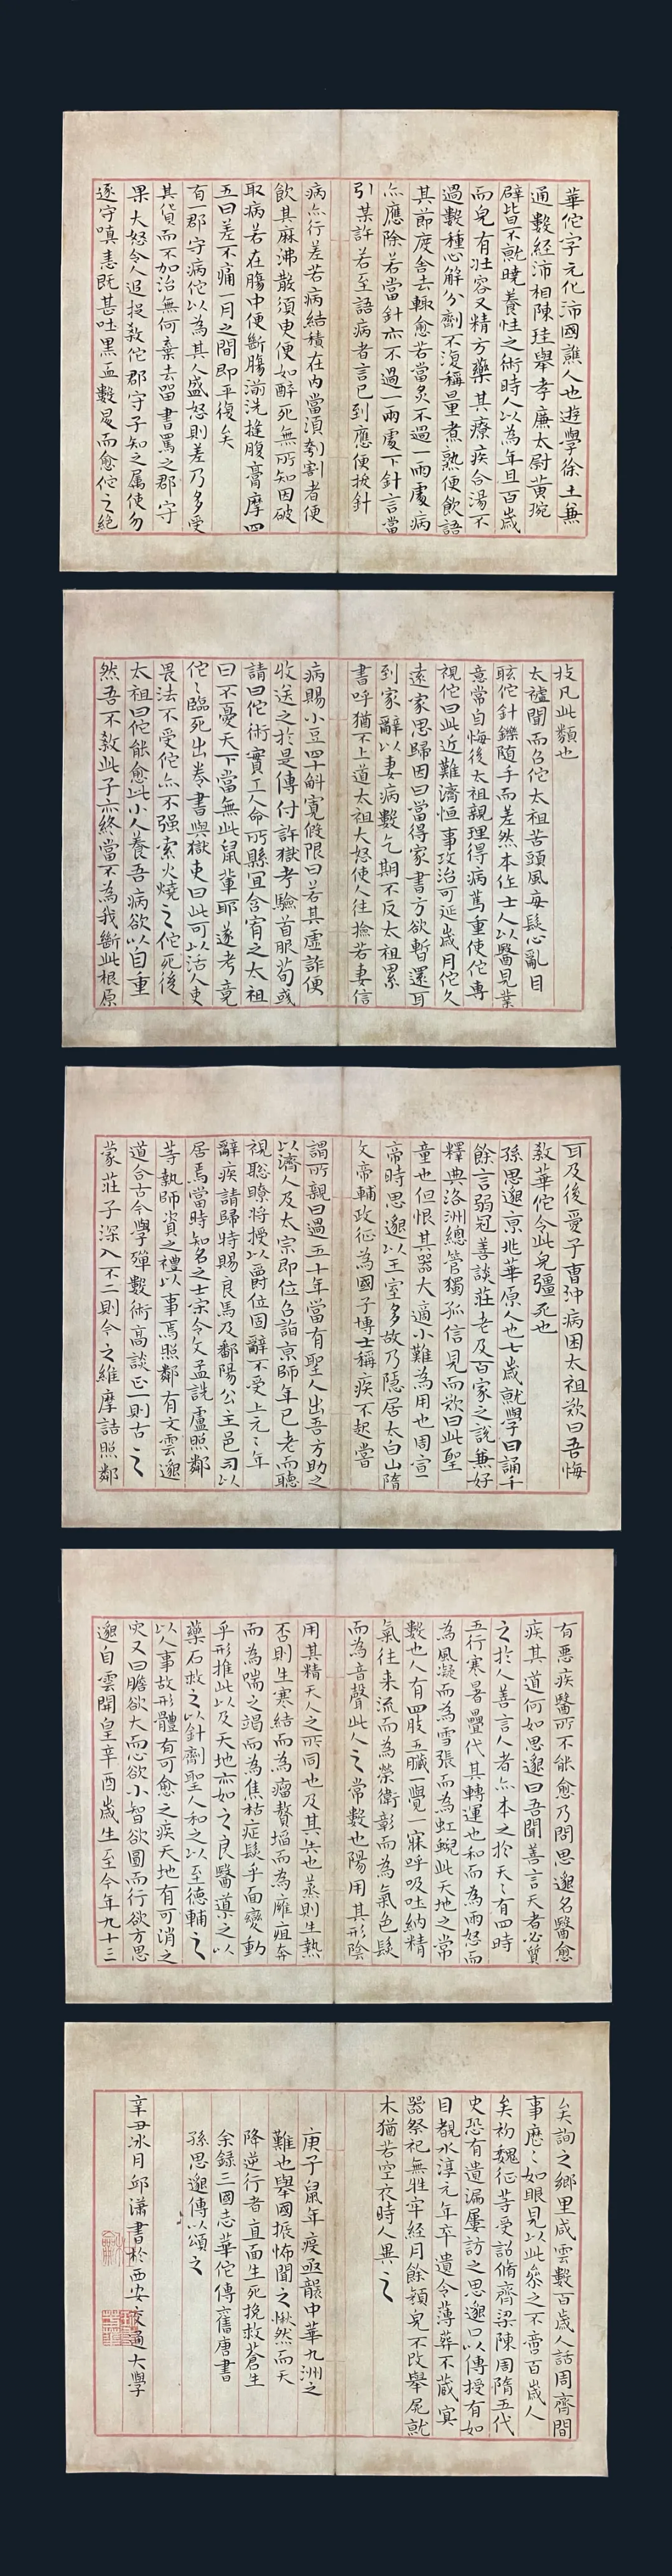 華佗字元化沛國譙人也遊學徐土兼
通數經沛相陳珪舉孝廉太尉黃琬
辟皆不就曉養性之術時人以為年且百歲
而皃有壯容又精方藥其療疾合湯不
過數種心解分劑不復稱量煮熟便飲語
其節度舍去輒愈若當灸不過一兩處病
亦應除若當針亦不過一兩處下針言當
引某許若至語病者言已到應便拔針
病亦行差若病結積在內當須刳割者便
飲其麻沸散須臾便如醉死無所知因破
取病若在腸中便斷腸湔洗縫腹膏摩四
五日差不痛一月之間即平復矣
有一郡守病佗以為其人盛怒則差乃多受
其貨而不加治無何棄去留書罵之郡守
果大怒令人追捉殺佗郡守子知之屬使勿
逐守嗔恚既甚吐黑血數㪷而愈佗之絕
技凡此類也
太祖聞而召佗太祖苦頭風每發心亂目
眩佗針鑠随手而差然本作士人以醫見業
意常自悔後太祖親理得病篤重使佗專
視佗曰此近難濟恒事攻治可延歲月佗久
遠家思歸因曰當得家書方欲暫還耳
到家辭以妻病數乞期不反太祖累
書呼猶不上道太祖大怒使人往撿若妻信
病賜小豆四十斛寬假限日若其虛詐便
收送之於是傳付許獄考驗首服荀彧
請曰佗術實工人命所縣宜含宥之太祖
曰不憂天下當無此鼠輩耶遂考竟
佗〻臨死出一卷書與獄吏曰此可以活人吏
畏法不受佗亦不强索火燒之佗死後
太祖曰佗能愈此小人養吾病欲以自重
然吾不殺此子亦終當不為我斷此根原
耳及後愛子曹沖病困太祖歎曰吾悔
殺華佗令此皃彊死也
孫思邈京兆華原人也七歲就學日誦千
餘言弱冠善談莊老及百家之說兼好
釋典洛洲總管獨孤信見而歎曰此聖
童也但恨其器大適小難為用也周宣
帝時思邈以王室多故乃隱居太白山隋
文帝輔政征為國子博士稱疾不起嘗
謂所親曰過五十年當有聖人出吾方助之
以濟人及太宗即位召詣京師年已老而聽
視聡瞭將授以爵位固辭不受上元〻年
辭疾請歸特賜良馬及鄱陽公主邑司以
居焉當時知名之士宋令文孟詵盧照鄰
等執師資之禮以事焉照鄰有文雲邈
道合古今學殫數術高談正一則古之
蒙莊子深入不二則今之維摩詰照鄰
有惡疾醫所不能愈乃問思邈名醫愈
疾其道何如思邈曰吾聞善言天者必質
之於人善言人者亦本之於天〻有四時
五行寒暑疊代其轉運也和而為雨怒而
為風凝而為雪張而為虹蜺此天地之常
數也人有四肢五臟一覺一寐呼吸吐納精
氣往来流而為榮衛彰而為氣色發
而為音聲此人之常數也陽用其形陰
用其精天人之所同也及其失也蒸則生熱
否則生寒結而為瘤贅陷而為癰疽奔
而為喘乏竭而為焦枯症發乎面變動
乎形推此以及天地亦如之良醫導之以
藥石救之以針劑聖人和之以至德輔之
以人事故形體有可愈之疾天地有可消之
灾又曰膽欲大而心欲小智欲圓而行欲方思
邈自雲開皇辛酉歲生至今年九十三
矣詢之鄉里咸雲數百歲人話周齊間
事歷〻如眼見以此參之不啻百歲人
矣初魏征等受詔脩齊梁陳周隋五代
史恐有遺漏屢訪之思邈口以傳授有如
目覩永淳元年卒遺令薄葬不藏冥
器祭祀無牲牢經月餘顏皃不改舉屍就
木猶若空衣時人異之
庚子鼠年疫亟襲中華九洲之
難也舉國振怖聞之愀然而天
降逆行者直面生死挽救蒼生
余録三國志華佗傳舊唐書
孫思邈傳以頌之
辛丑冰月邱瀟書於西安交通大學